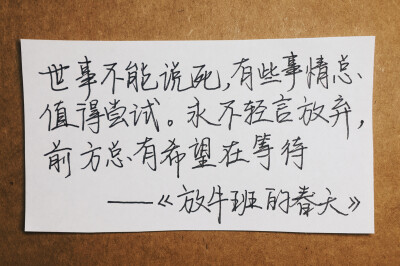 世事不能说死,有些事情总
值得尝试。永不轻言放弃,
前方总有希望在等待
——《放牛班的春天》